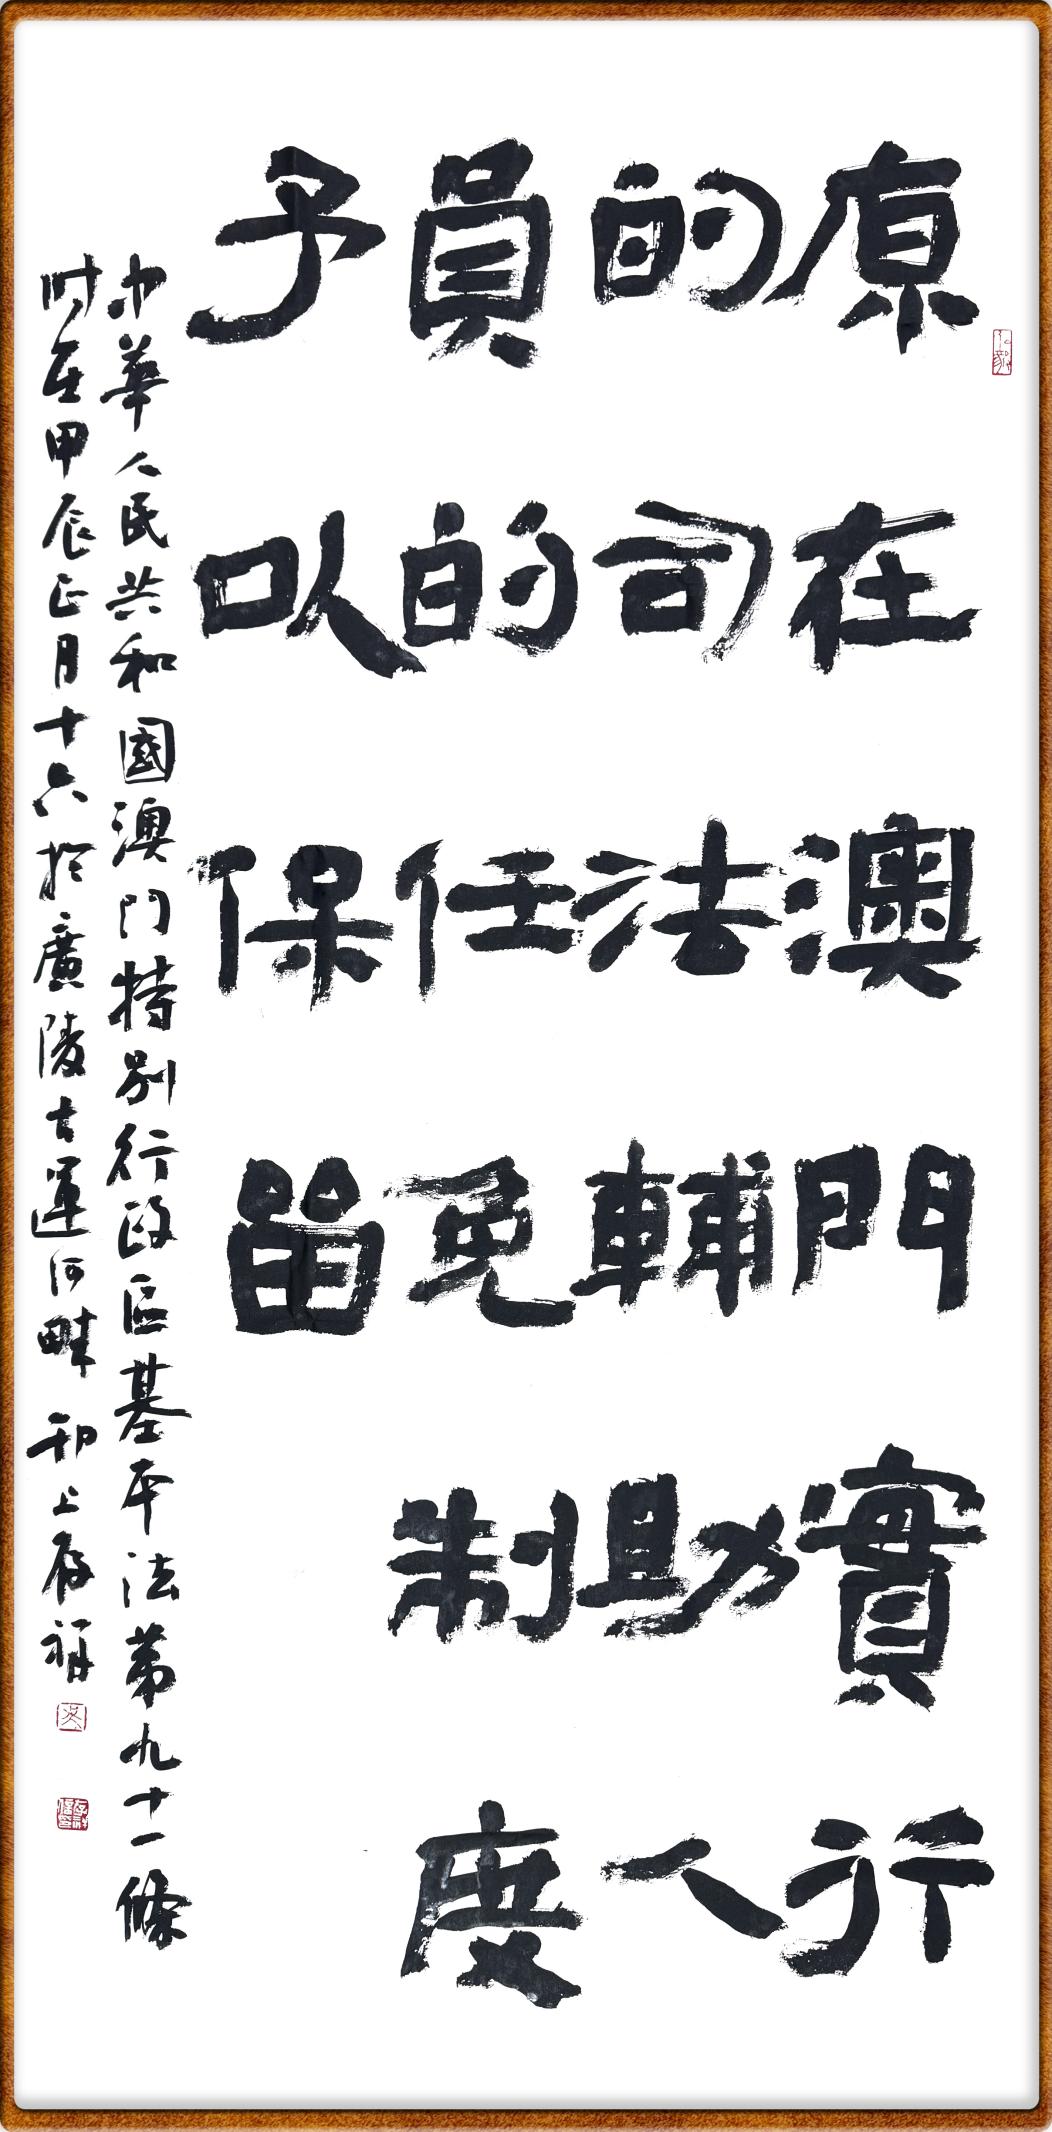 原在澳門實行
的司法輔助人
員的任免制度
予以保留
中華人民共和國澳門特別行政區基本法第九十一條
時在甲辰正月十六於廣陵古運河畔